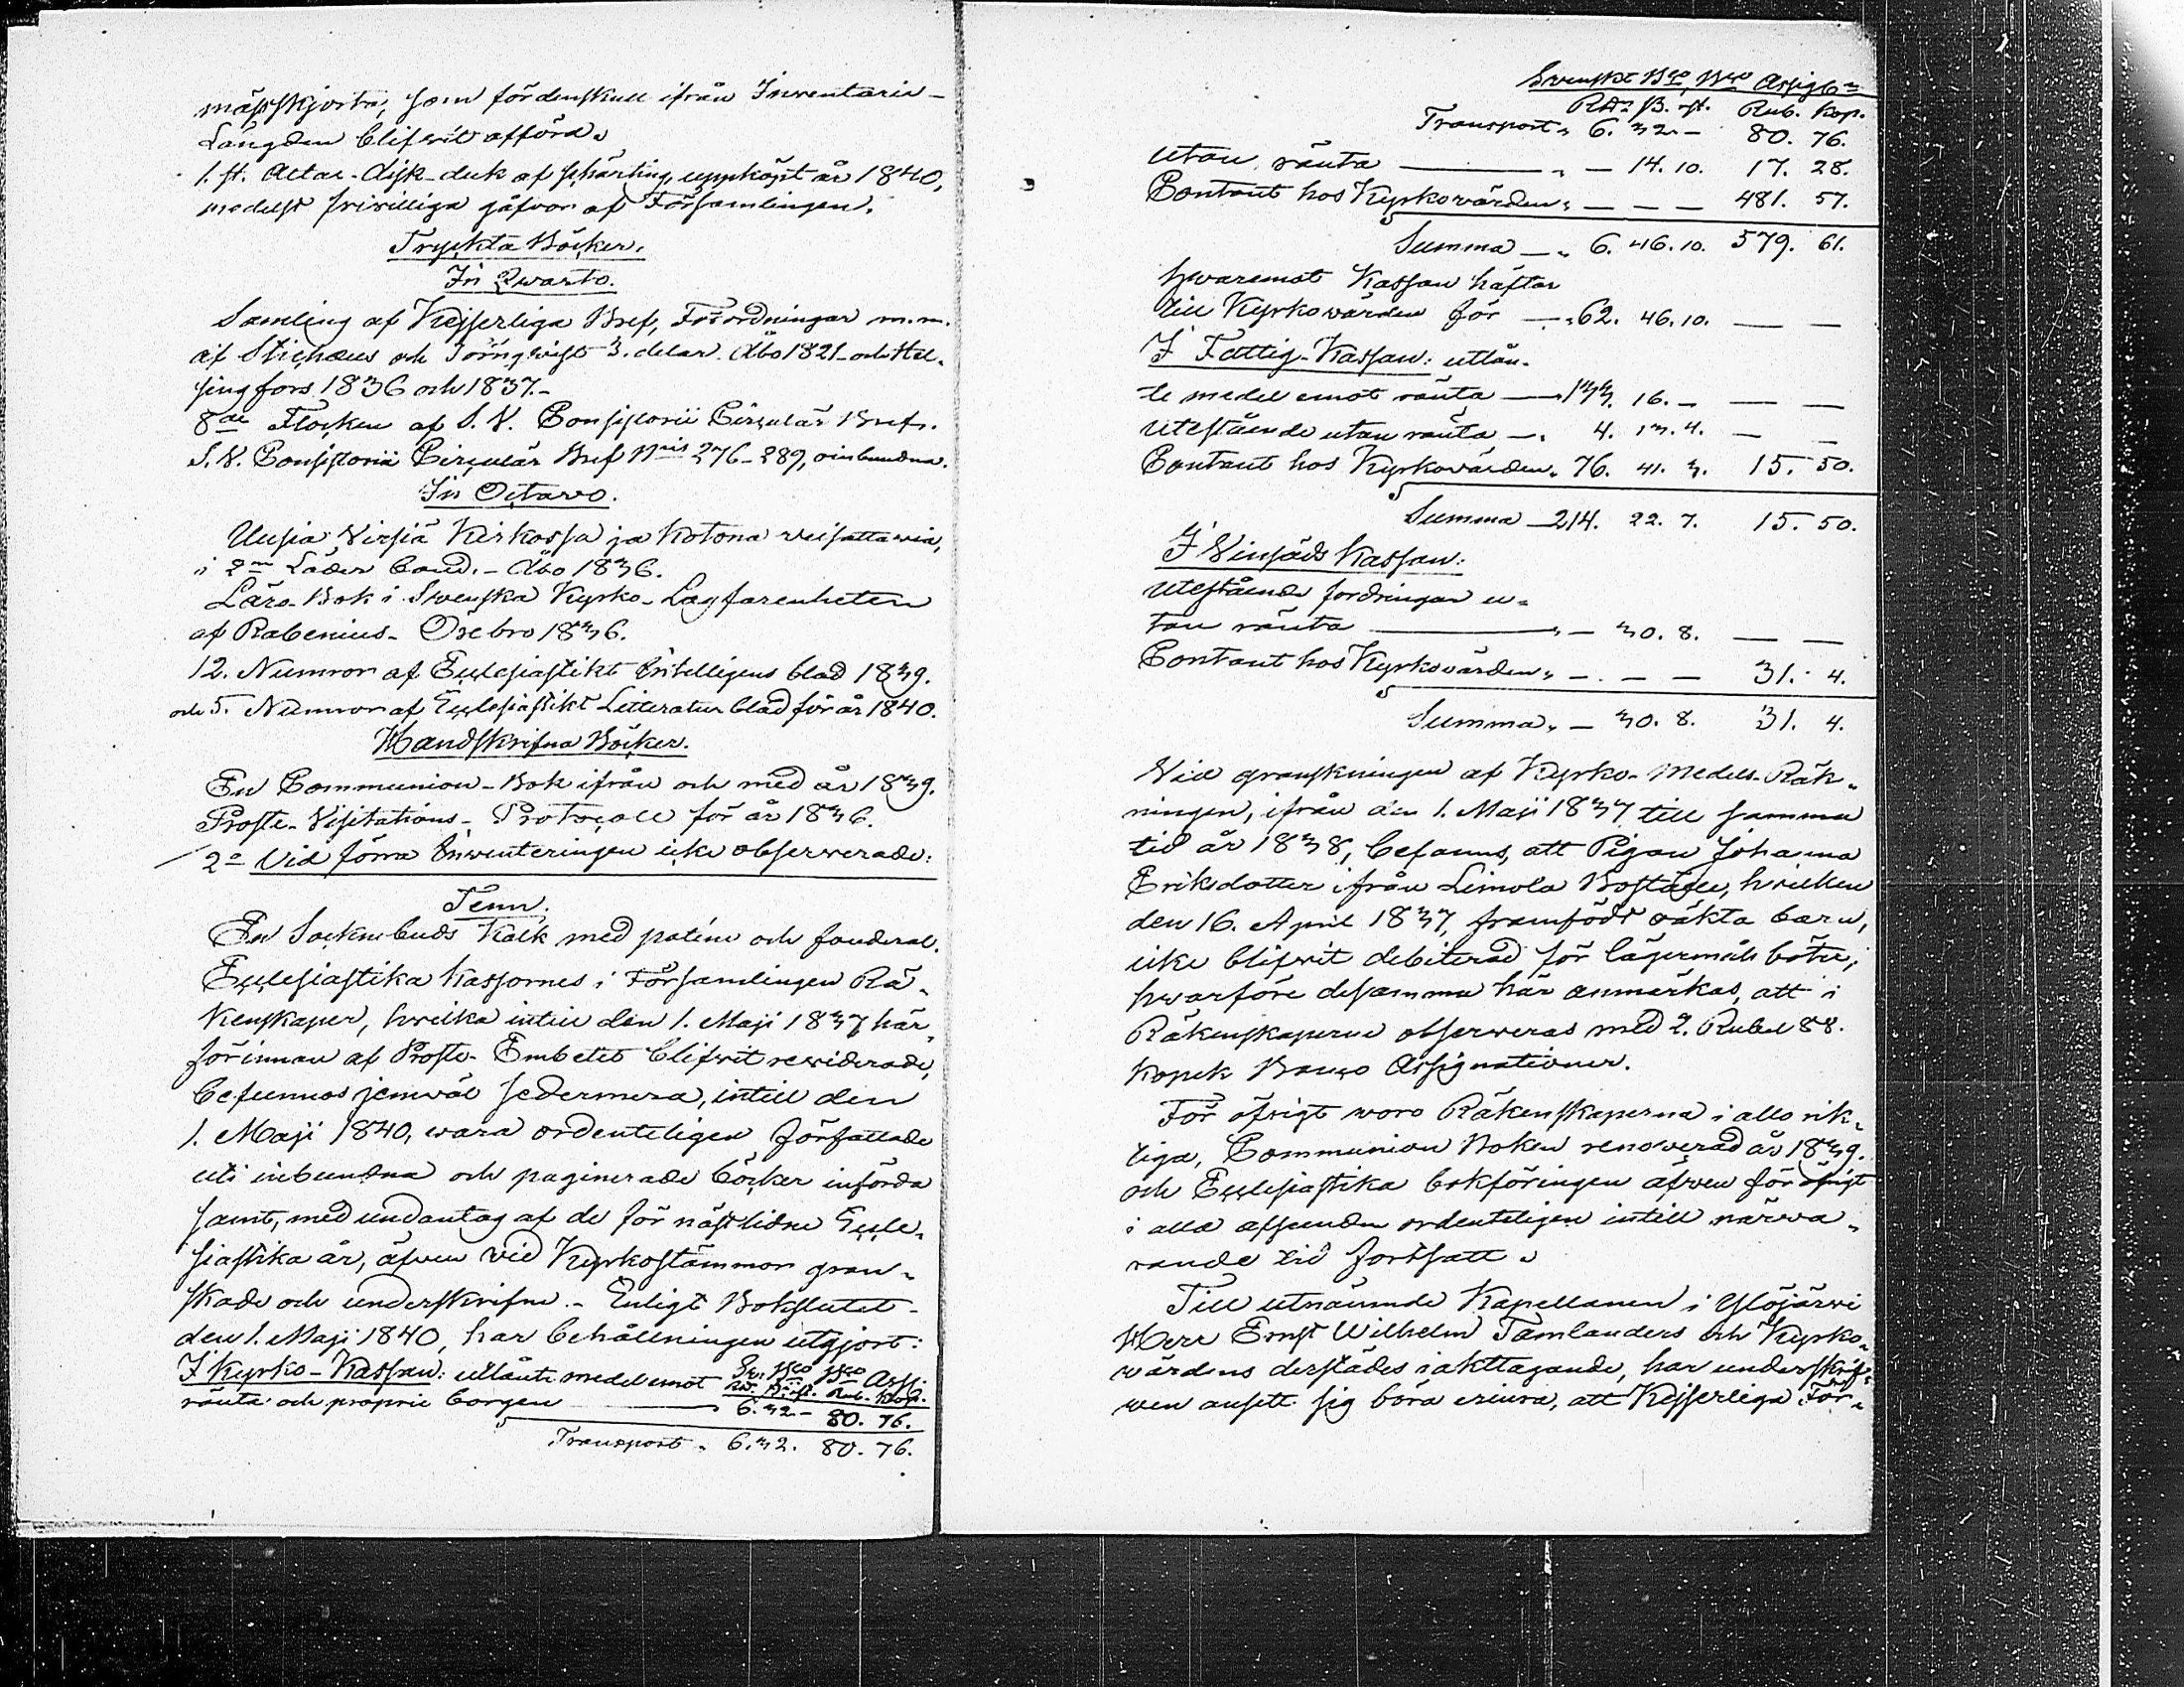 mässkjorta, som fördenskull ifrån Inventarie-
Längden blifvit afförd.
1. st. Altar-disk-duk af schärting, uppköpt år 1840,
medelst frivilliga gåfvor af Församlingen.
Tryckta Böcker.
In Qwarto.
Samling af Kejserliga Bref, Förordningar m.m.
af Stichæus och Törnqwist 3. delar. Åbo 1821- och Hel-
singfors 1836 och 1837.-
8de Flocken af S. V. Consistorii Circulär Bref.
S. V. Consistorii Circulär Bref Nris 276-289, oinbundna.
In Octavo.
Uusia Virsiä Kirkossa ja Kotona veisattavia,
i 2ne Läder band. - Åbo 1836.
Läro-Bok i Swenska Kyrko-Lagfarenheten
af Rabenius- Örebro 1836.
12. Numror af Ecclesiastikt Intelligens blad 1839.
och 5. Numror af Ecclesiastikt Litteratur blad för år 1840.
Handskrifna Böcker.
En Communion-Bok ifrån och med år 1839.
Proste-Visitations-Protocoll för år 1836.
2o Vid förra Inventeringen icke observerade:
Tenn.
En Sockenbuds Kalk med patén och fouderal.
Ecclesiastika Kassornes i Församlingen Rä-
kenskaper, hvilka intill den 1. Maji 1837 här
förinnan af Proste-Embetet blifvit reviderade,
befunnos jemväl sedermera, intill den
1. Maji 1840, vara ordenteligen författade
uti inbundna och paginerade böcker införda
samt, med undantag af de för nästlidne Eccle-
siastika år, äfven vid Kyrkostämmor gran-
skade och underskrifne. - Enligt Bokslutet
den 1. Maji 1840, har behållningen utgjort:
I Kyrko-Kassan: utlånte medel emot Sv. Bco Bco Assi.
Rd. ß. rst. Rub. Kop.
ränta och proprie borgen 6. 32.- 80. 76.
Transport. 6. 32. 80. 76.
Svenskt Bco, Bco Assign
Rdr ß. rst. Rub. Kop.
Transport. 6. 32.- 80. 76.
utan ränta - 14. 10. 17. 28.
Contant hos Kyrkovärden. - - - 481. 57.
Summa - 6. 46. 10. 579. 61.
hvaremot Kassan häftar
till Kyrkovärden för - 62. 46. 10. - -
I Fattig-Kassan: utlån-
te medel emot ränta - 133. 16. - - -
Utestående utan ränta -. 4. 13. 4. - -
Contant hos Kyrkovärden. 76. 41. 3. 15. 50.
Summa - 214. 22. 7. 15. 50.
I Vinsäds Kassan:
Utestående fordringar u-
tan ränta - 30. 8. - -
Contant hos Kyrkovärden. - - - 31. 4.
Summa. - 30. 8. 31. 4.
Vid granskningen af Kyrko-Medels-Räk-
ningen, ifrån den 1. Maji 1837 till samma
tid år 1838, befanns, att Pigan Johanna
Eriksdotter ifrån Limola Boställe, hvilken
den 16. April 1837, framfödt oäkta barn,
icke blifvit debiterad för lägermåls böter,
hvarföre detsamma här anmärkas, att i
Räkenskaperne observeras med 2. Rubel 88.
Kopek Banco Assignationer.
För öfrigt voro Räkenskaperna i allo rik-
tiga, Communion Boken renoverad år 1839.
och Ecclesiastika bokföringen äfven för öfrigt
i alla afseenden ordenteligen intill närva-
rande tid fortsatt.
Till utnämnde Kapellanen i Ylöjärvi
Herr Ernst Wilhelm Tamlanders och Kyrko-
vårdens derstädes iakttagande, har underskrif-
ven ansett sig böra erinra, att Kejserliga För-